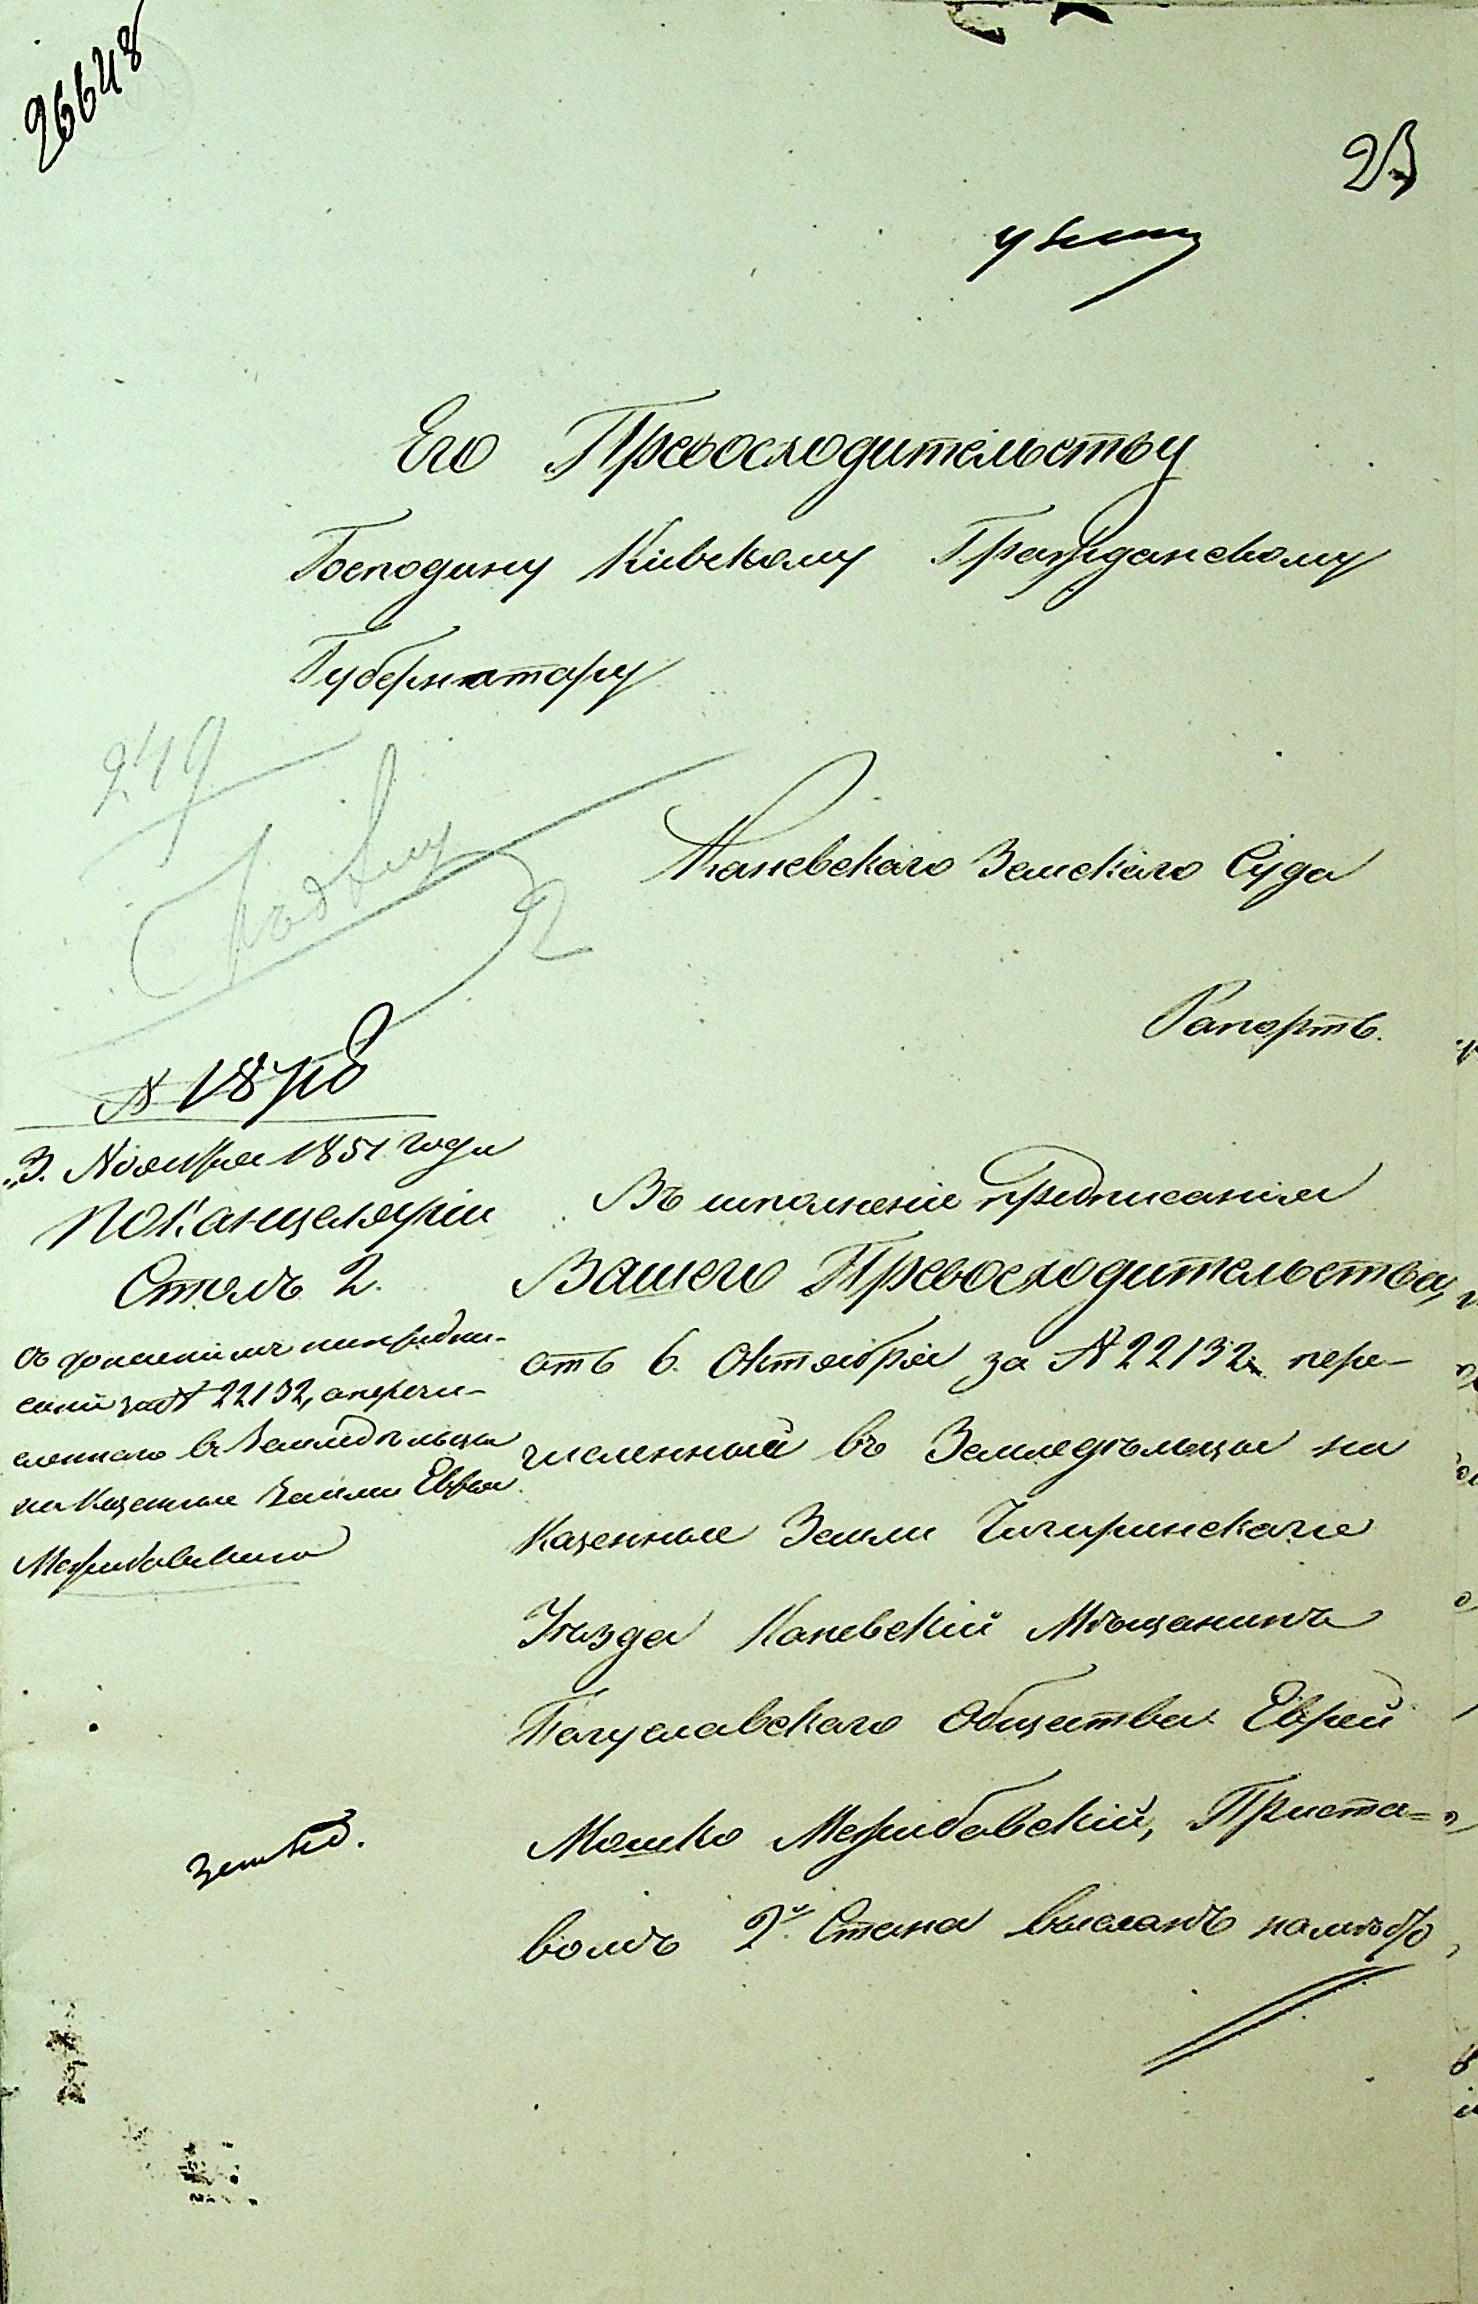 26648
23
Его Превосходительству
Господину Кіевскому Гражданскому
Губернатору
249
2
Каневскаго Земскаго Суда
Рапортъ.
№
3. Ноября 1851 года
По Канцеляріи
Столъ 2.
съ донесеніемъ на предпи-
саніе за № 22132, о перечи-
сленномъ въ Земледѣльцы
на Казенныя Земли Евреѣ
Межибовскомъ
Въ исполненіе предписанія
Вашего Превосходительства,
отъ 6. Октября за № 22132 пере-
численный въ Земледѣльцы на
Казенныя Земли Чигиринскаго
Уѣзда Каневскій Мѣщанинъ
Богуславскаго Общества Еврей
Мошко Межибовскій, Приста-
вомъ 2го Стана высланъ